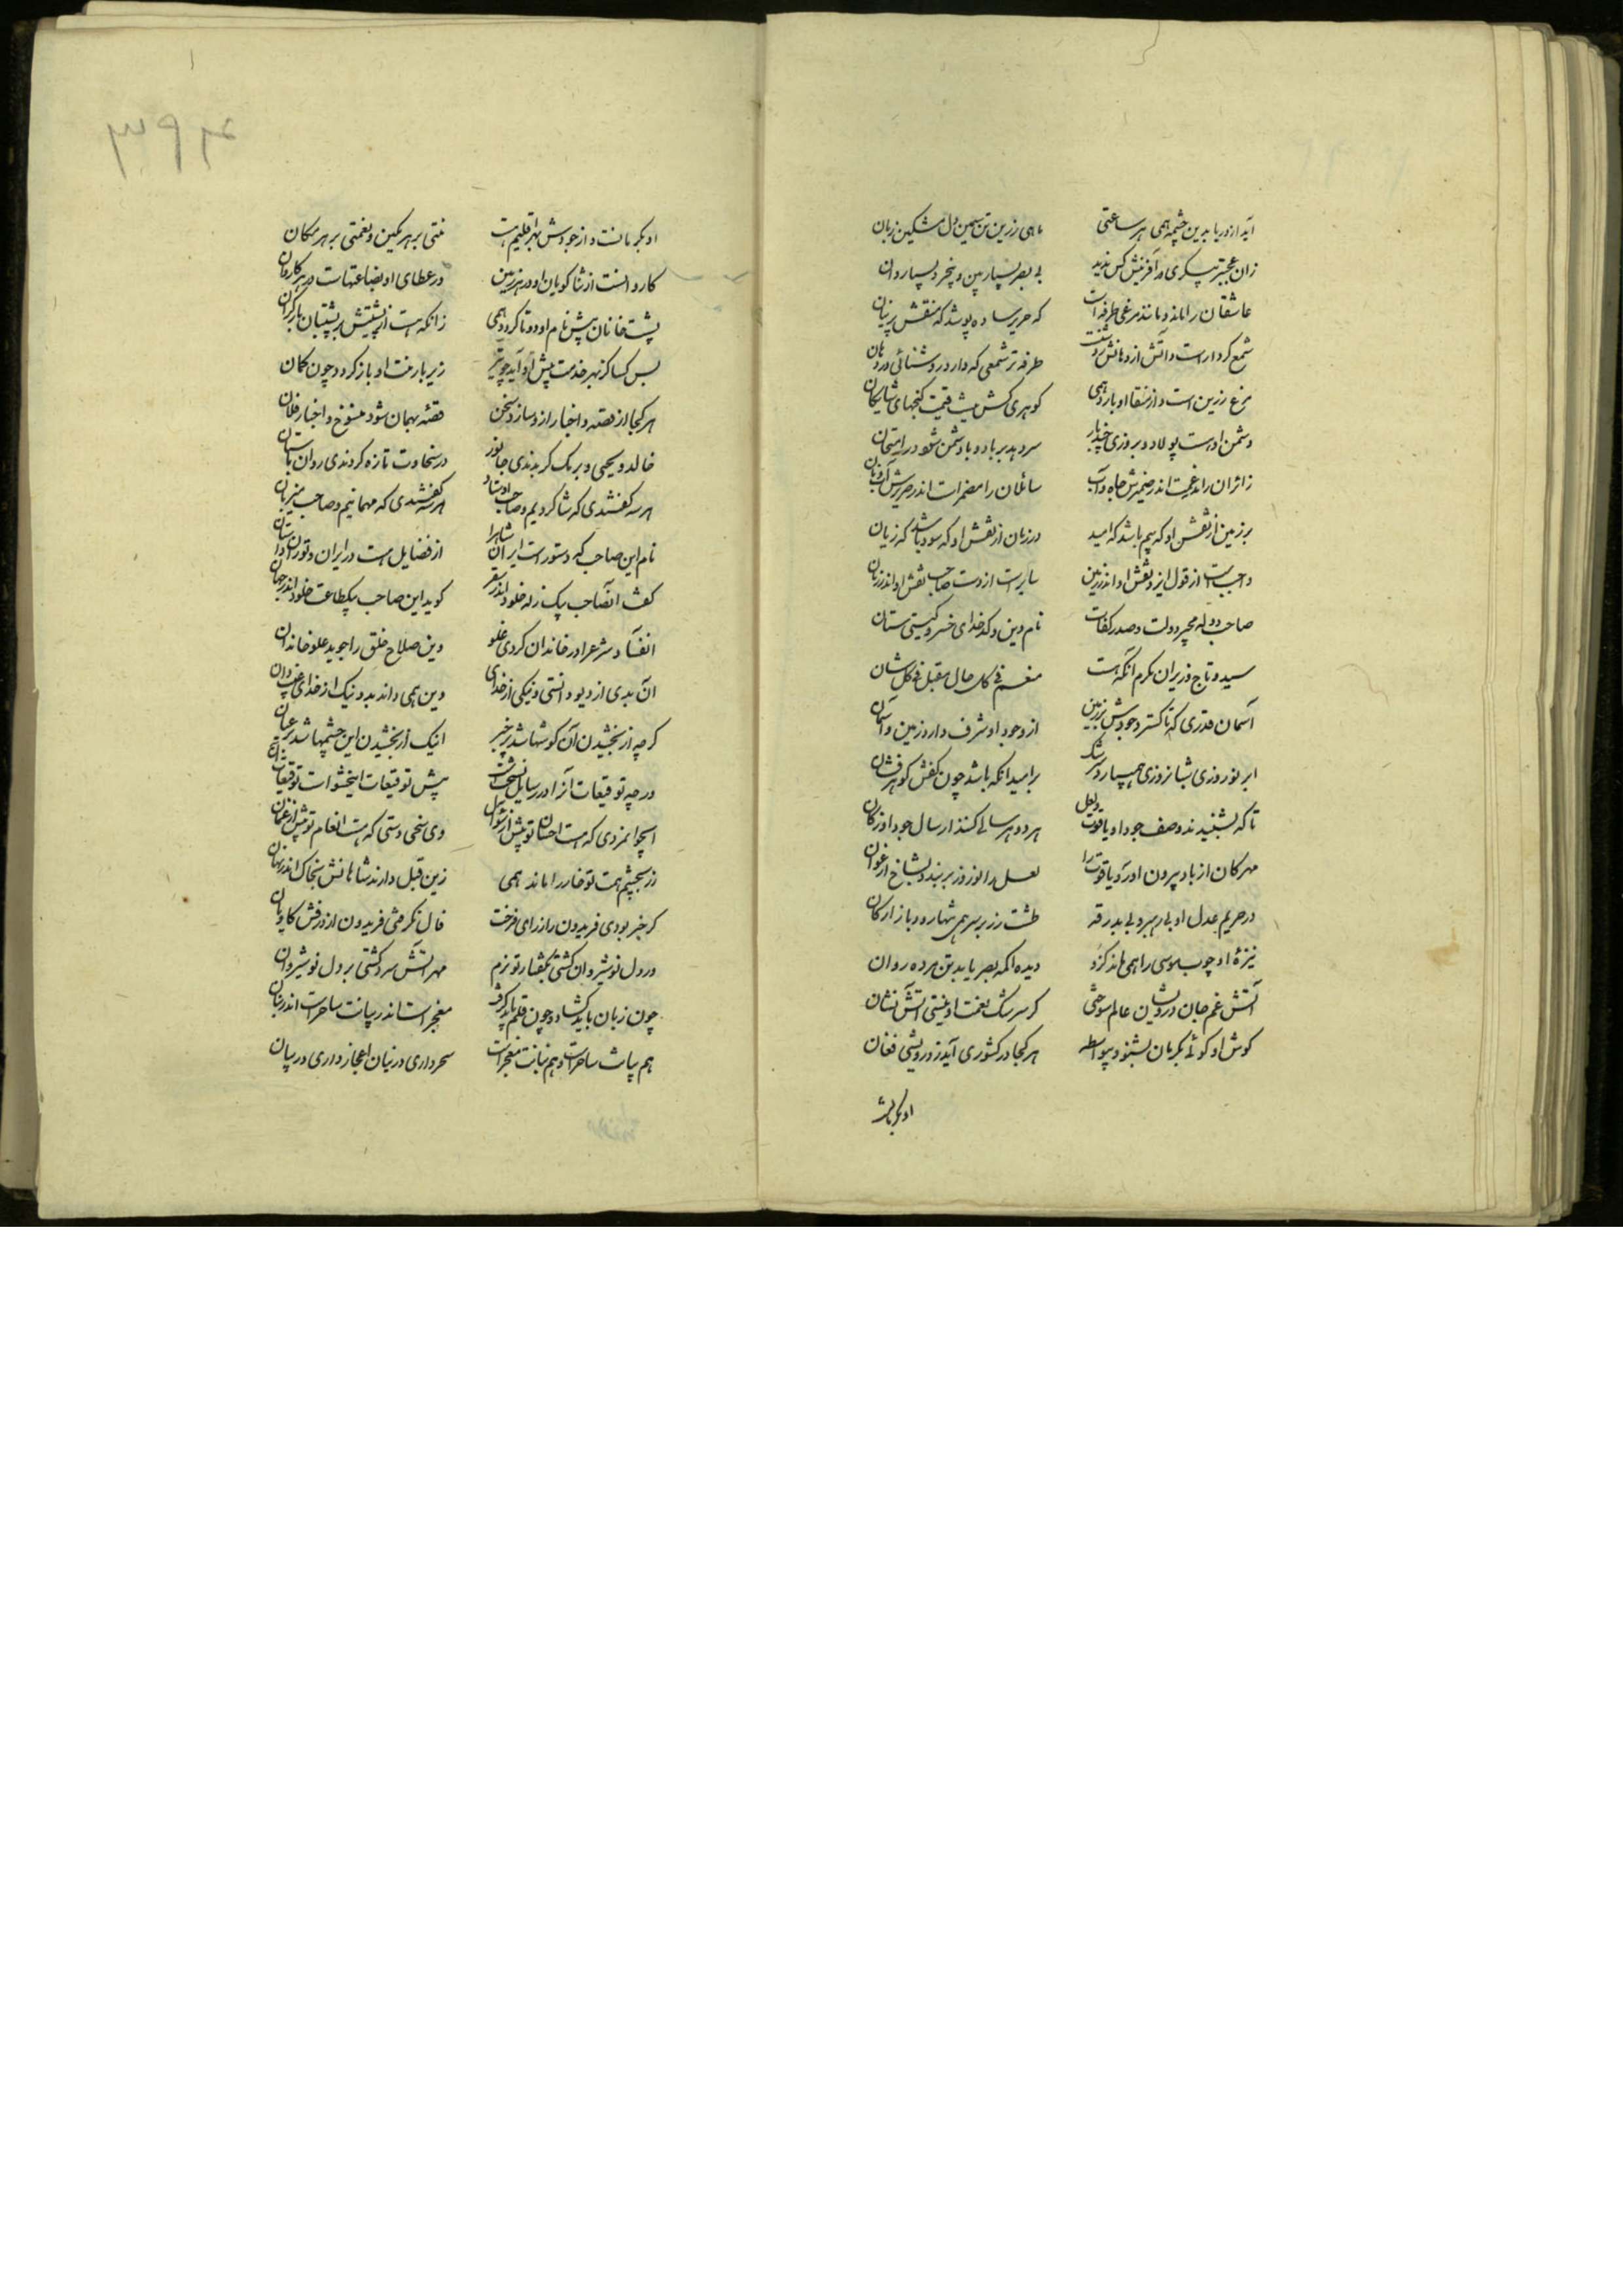 آید از دریا بدین چشمه همی هر ساعتی ماهی زرین تن سیمین دل مشکین زبان
زان عجبتر پیکری در آفرینش کس ندید بی بصر بسیار بین و بیخرد بسیار دان
عاشقان را ماند و مانند مرغی طرفه است که حریر ساده پوشد که منقش پرنیان
شمع کردار است و آتش از دهانش طرفه تر شمعی که دارد روشنائی در دهان
مرغ زرین است و از منقار او بارد همی گوهری کش هست قیمت گنجهای شایگان
دشمن اوست پولاد و بروزی چند بار سر دهد بر باد و با دشمن شود در امتحان
زائران را در ضمیرش جاه و آب سائلان را مضمر است اندر صریرش آب و نان
بر زمین از نقش او که بیم باشد که امید در زمان از نقش او که سود باشد که زیان
واجب است از قول ایزد نقش او اندر زمین سایر است از دست صاحب نقش او اندر زمان
صاحب دولت و صدر کفات نام دین و کدخدای خسرو گیتی ستان
سید و تاج وزیران مکرم آنکه هست منعم فی کل حال مقبل فی کل شان
آسمان قدری که تا گسترد جودش بر زمین از وجود او شرف دارد زمین و آسمان
ابر نوروزی بشبانروزی همی بارد سرشک بر امید آنکه باشد چون کفش گوهرفشان
تا که بشنیدند وصف جود او یاقوت و لعل هر دو هر سالی کنند ارسال جود او ز کان
مهرگان از باد بیرون آورد یاقوت را لعل را نوروز بربندد بشاخ ارغوان
در حریم عدل او بی رهبر و بی بدرقه طشت زر بر سر همی شهار و بازارکان
نیزه او چوب موسی را همی ماند کزو دیده اکمه بصر یابد تن مرده روان
آتش غم جان درویشان عالم سوختی گر سرشک نعمت او نیستی آتش نشان
گوش او گوئی بکرمان بشنود بیواسطه هر کجا در کشوری آید ز درویشی فغان
او بکرمانست
۲۹۳
او بکرمانست و از جودش بهر اقلیم هست منتی بر هر مکین و نعمتی بر هر مکان
کاروانست از ثنا گویان او در هر زمین در عطای او بضاعتهاست در هر کاروان
پشت خانان پیش نام او دو تا گردد همی زانکه هست از پشتیش بر پشتشان بار گران
بس کسا کز بهر خدمت پیش او آید چو تیر زیر بار منت او باز گردد چون کمان
هر کجا از قصه و اخبار او سازد سخن قصه بهمان شود منسوخ و اخبار فلان
خالد و یحیی و برمک گر بدندی جانور در سخاوت تازه کردندی روان باستان
هر سه گفتندی که شاگردیم و صاحب اوستاد هر سه گفتندی که مهمانیم و صاحب میزبان
نام این صاحب که دستور است ایران شاه را از فضایل هست در ایران و توران داستان
گفت آنصاحب بیک زله خلود اندر سقر گوید این صاحب بیک طاعت خلود اندر جنان
در شرع را در خاندان کردی غلو وین صلاح خلق را جوید علو خاندان
آن بدی از دیو دانستی و نیکی از خدای وین همی داند بد و نیک از خدای غیب دان
گرچه از بخشیدن آن گوشها شد پر خبر اینک از بخشیدن این چشمها شد پر عیان
ورچه توقیعات آنرا در رسایل نسخت است پیش توقیعات این
ای جوانمردی که هست احسان تو پیش از سؤال وی سخی دستی که هست انعام تو بیش از گمان
زر بچشم همت تو خار را ماند همی زین قبل دارند شاهانش بخاک اندر نهان
گر خبر بودی فریدون را ز رای فرخت فال نگرفتی فریدون از درفش کاویان
ور دل نوشیروان گشتی بگفتار تو نرم مهر آتش سرد گشتی بر دل نوشیروان
چون زبان باید گشاد و چون قلم باید گرفت معجز است اندر بیانت ساحر است اندر بنان
هم بیانت ساحر است و هم بنانت معجز است سحر داری در بنان اعجاز داری در بیان